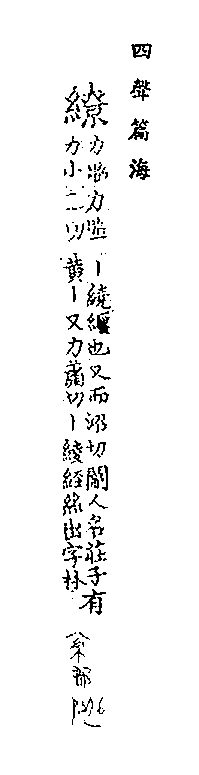 四聲篇海
繚
力 力 丨繞纏也又而沼切闕人名莊子有
力小 切黃丨又力蕭切丨綾經絲出字林
糸部